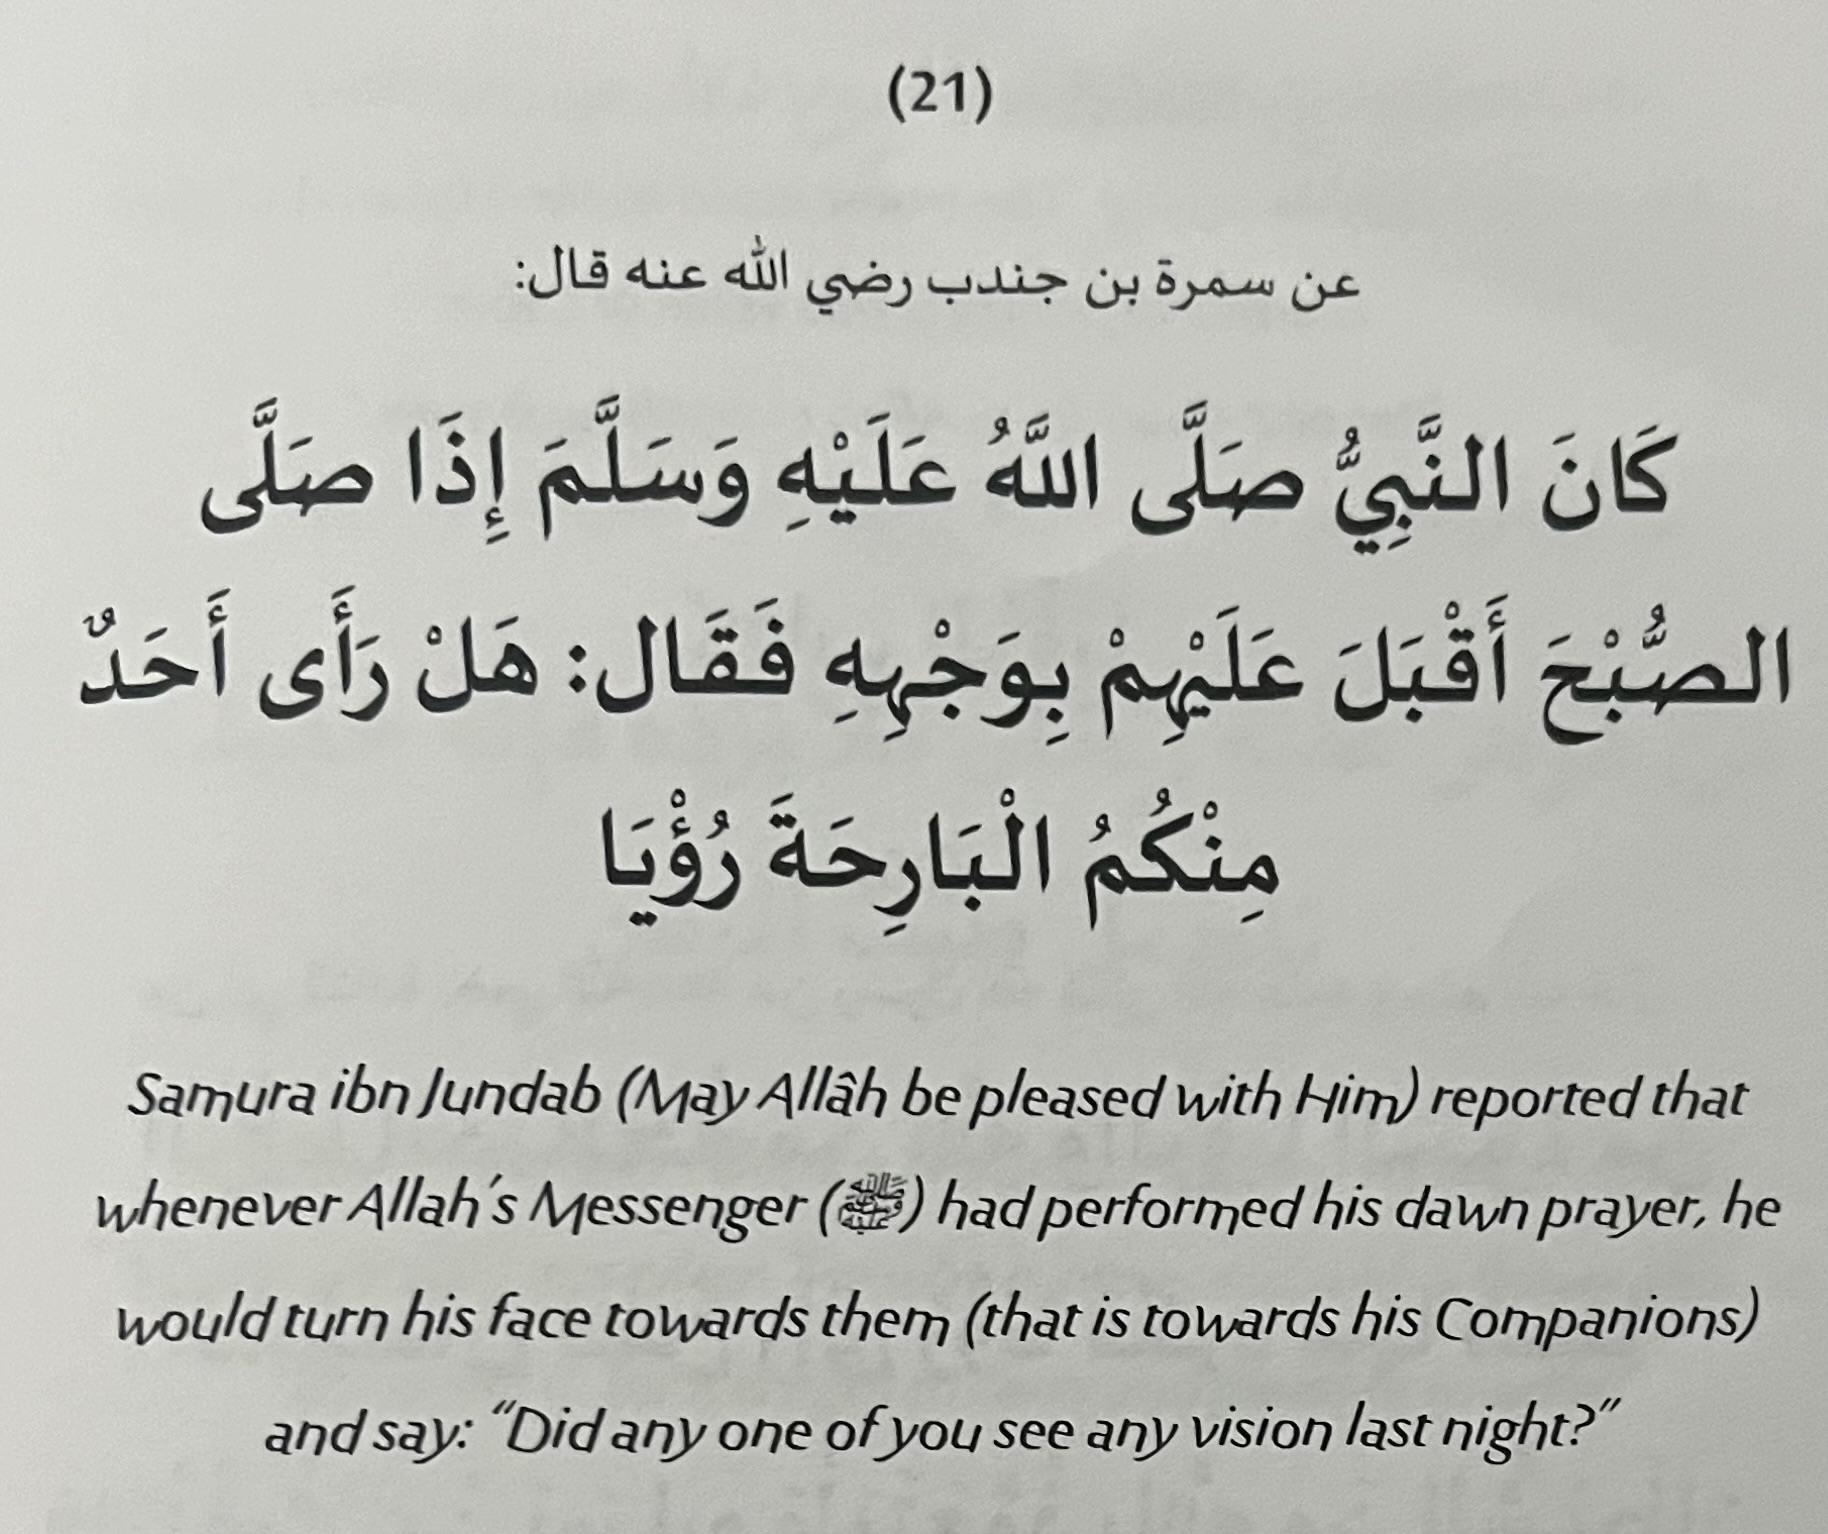 (21)
عن سمرة بن جندب رضي الله عنه قال:
كَانَ النَّبِيُّ صَلَّى اللَّهُ عَلَيْهِ وَسَلَّمَ إِذَا صَلَّى
الصُّبْحَ أَقْبَلَ عَلَيْهِمْ بِوَجْهِهِ فَقَال: هَلْ رَأَى أَحَدٌ
مِنْكُمُ الْبَارِحَةَ رُؤْيَا
Samura ibn Jundab (May Allâh be pleased with Him) reported that
whenever Allah's Messenger (ﷺ) had performed his dawn prayer, he
would turn his face towards them (that is towards his Companions)
and say: “Did any one of you see any vision last night?”